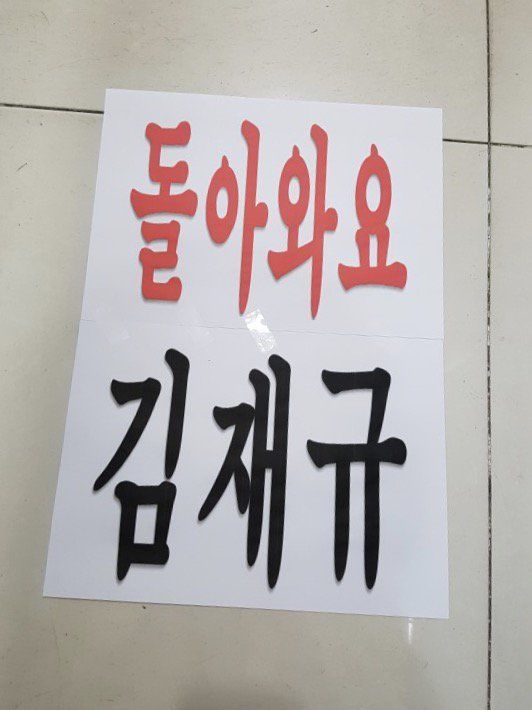 돌아와요
김재규